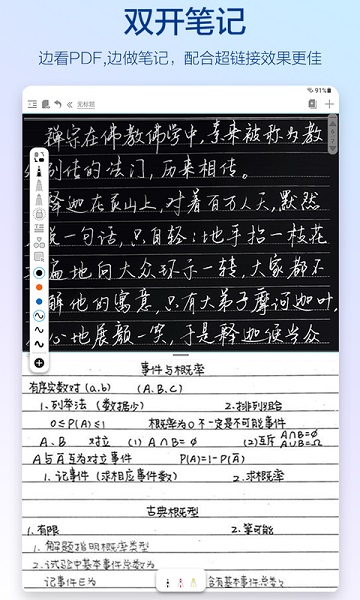 双开笔记
边看PDF,边做笔记，配合超链接效果更佳
91%
无标题
禅宗在佛教佛学中,素来被称为教
别传的法门,历来相传。
释迦在灵山上,对着百万人天,默然
说一句话,只自轻轻地手拈一枝花
遍地向大众环示一转,大家都不
解他的寓意,只有大弟子摩诃迦叶,
心地展颜一笑,于是释迦便当众
事件与概率
有序实数对(a,b) (A.B.C)
1.列举法(数据少) 2.排列组合
0≤P(A)≤1 概率为0不一定是不可能事件
A、B 对立 (1) A∩B=∅ (2)互斥 A∩B=∅ A∪B=Ω
A与A̅互为对立事件 P(A)=1-P(A̅)
1.记事件(求相应事件数) 2.求概率
古典概型
1.有限 2.等可能
1.解题指明概率类型
2.试验中基本事件总数为
记事件E为 含有基本事件总数